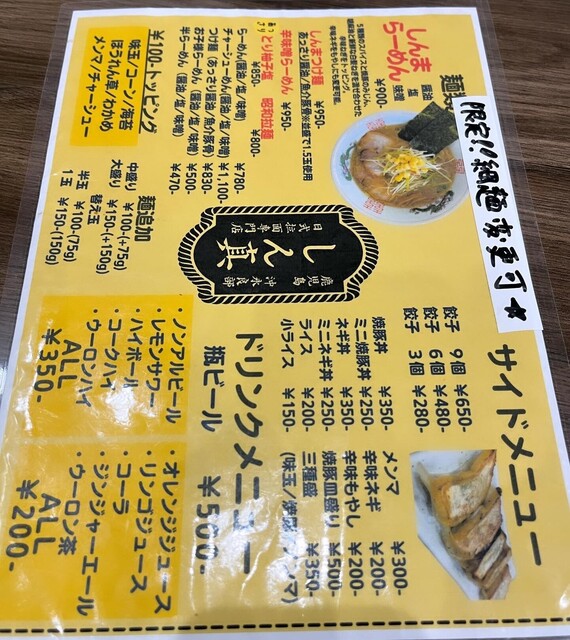 限定!!細麺変更可★
麺類
しんま
らーめん
醤油
塩
味噌
¥990-
5種類のスパイスと豚脂のみじん、
辛味ねぎをトッピング。
辛味ネギをもやしにも変更可能。
しんまつけ麺 ¥950-
あっさり醤油/魚介豚骨※並盛で1.5玉使用
辛味噌らーめん ¥950-
あっさり
とり柚子塩 ¥850-
昭和拉麺 ¥800-
らーめん(醤油/塩/味噌) ¥780-
チャーシューめん(醤油/塩/味噌) ¥1,100-
つけ麺(あっさり醤油/魚介豚骨) ¥830-
お子様らーめん(醤油/塩/味噌) ¥500-
半らーめん(醤油/塩/味噌) ¥470-
¥100-トッピング
味玉/コーン/海苔
ほうれん草/わかめ
メンマ/チャーシュー
麺追加
中盛り ¥100-(+75g)
大盛り ¥150-(+150g)
替え玉
半玉 ¥100-(75g)
1玉 ¥150-(150g)
鹿児島 沖永良部
しん真
日式拉面専門店
サイドメニュー
餃子 9個 ¥650-
餃子 6個 ¥480-
餃子 3個 ¥280-
焼豚丼 ¥350-
ミニ焼豚丼 ¥250-
ネギ丼 ¥350-
ミニネギ丼 ¥250-
ライス ¥200-
小ライス ¥150-
メンマ ¥300-
辛味ネギ ¥200-
辛味もやし ¥200-
焼豚皿盛り ¥500-
三種盛 ¥350-
(味玉/焼豚/メンマ)
ドリンクメニュー
瓶ビール ¥500-
・ノンアルビール
・レモンサワー
・ハイボール
・コークハイ
・ウーロンハイ
ALL
¥350-
・オレンジジュース
・リンゴジュース
・コーラ
・ジンジャーエール
・ウーロン茶
ALL
¥200-